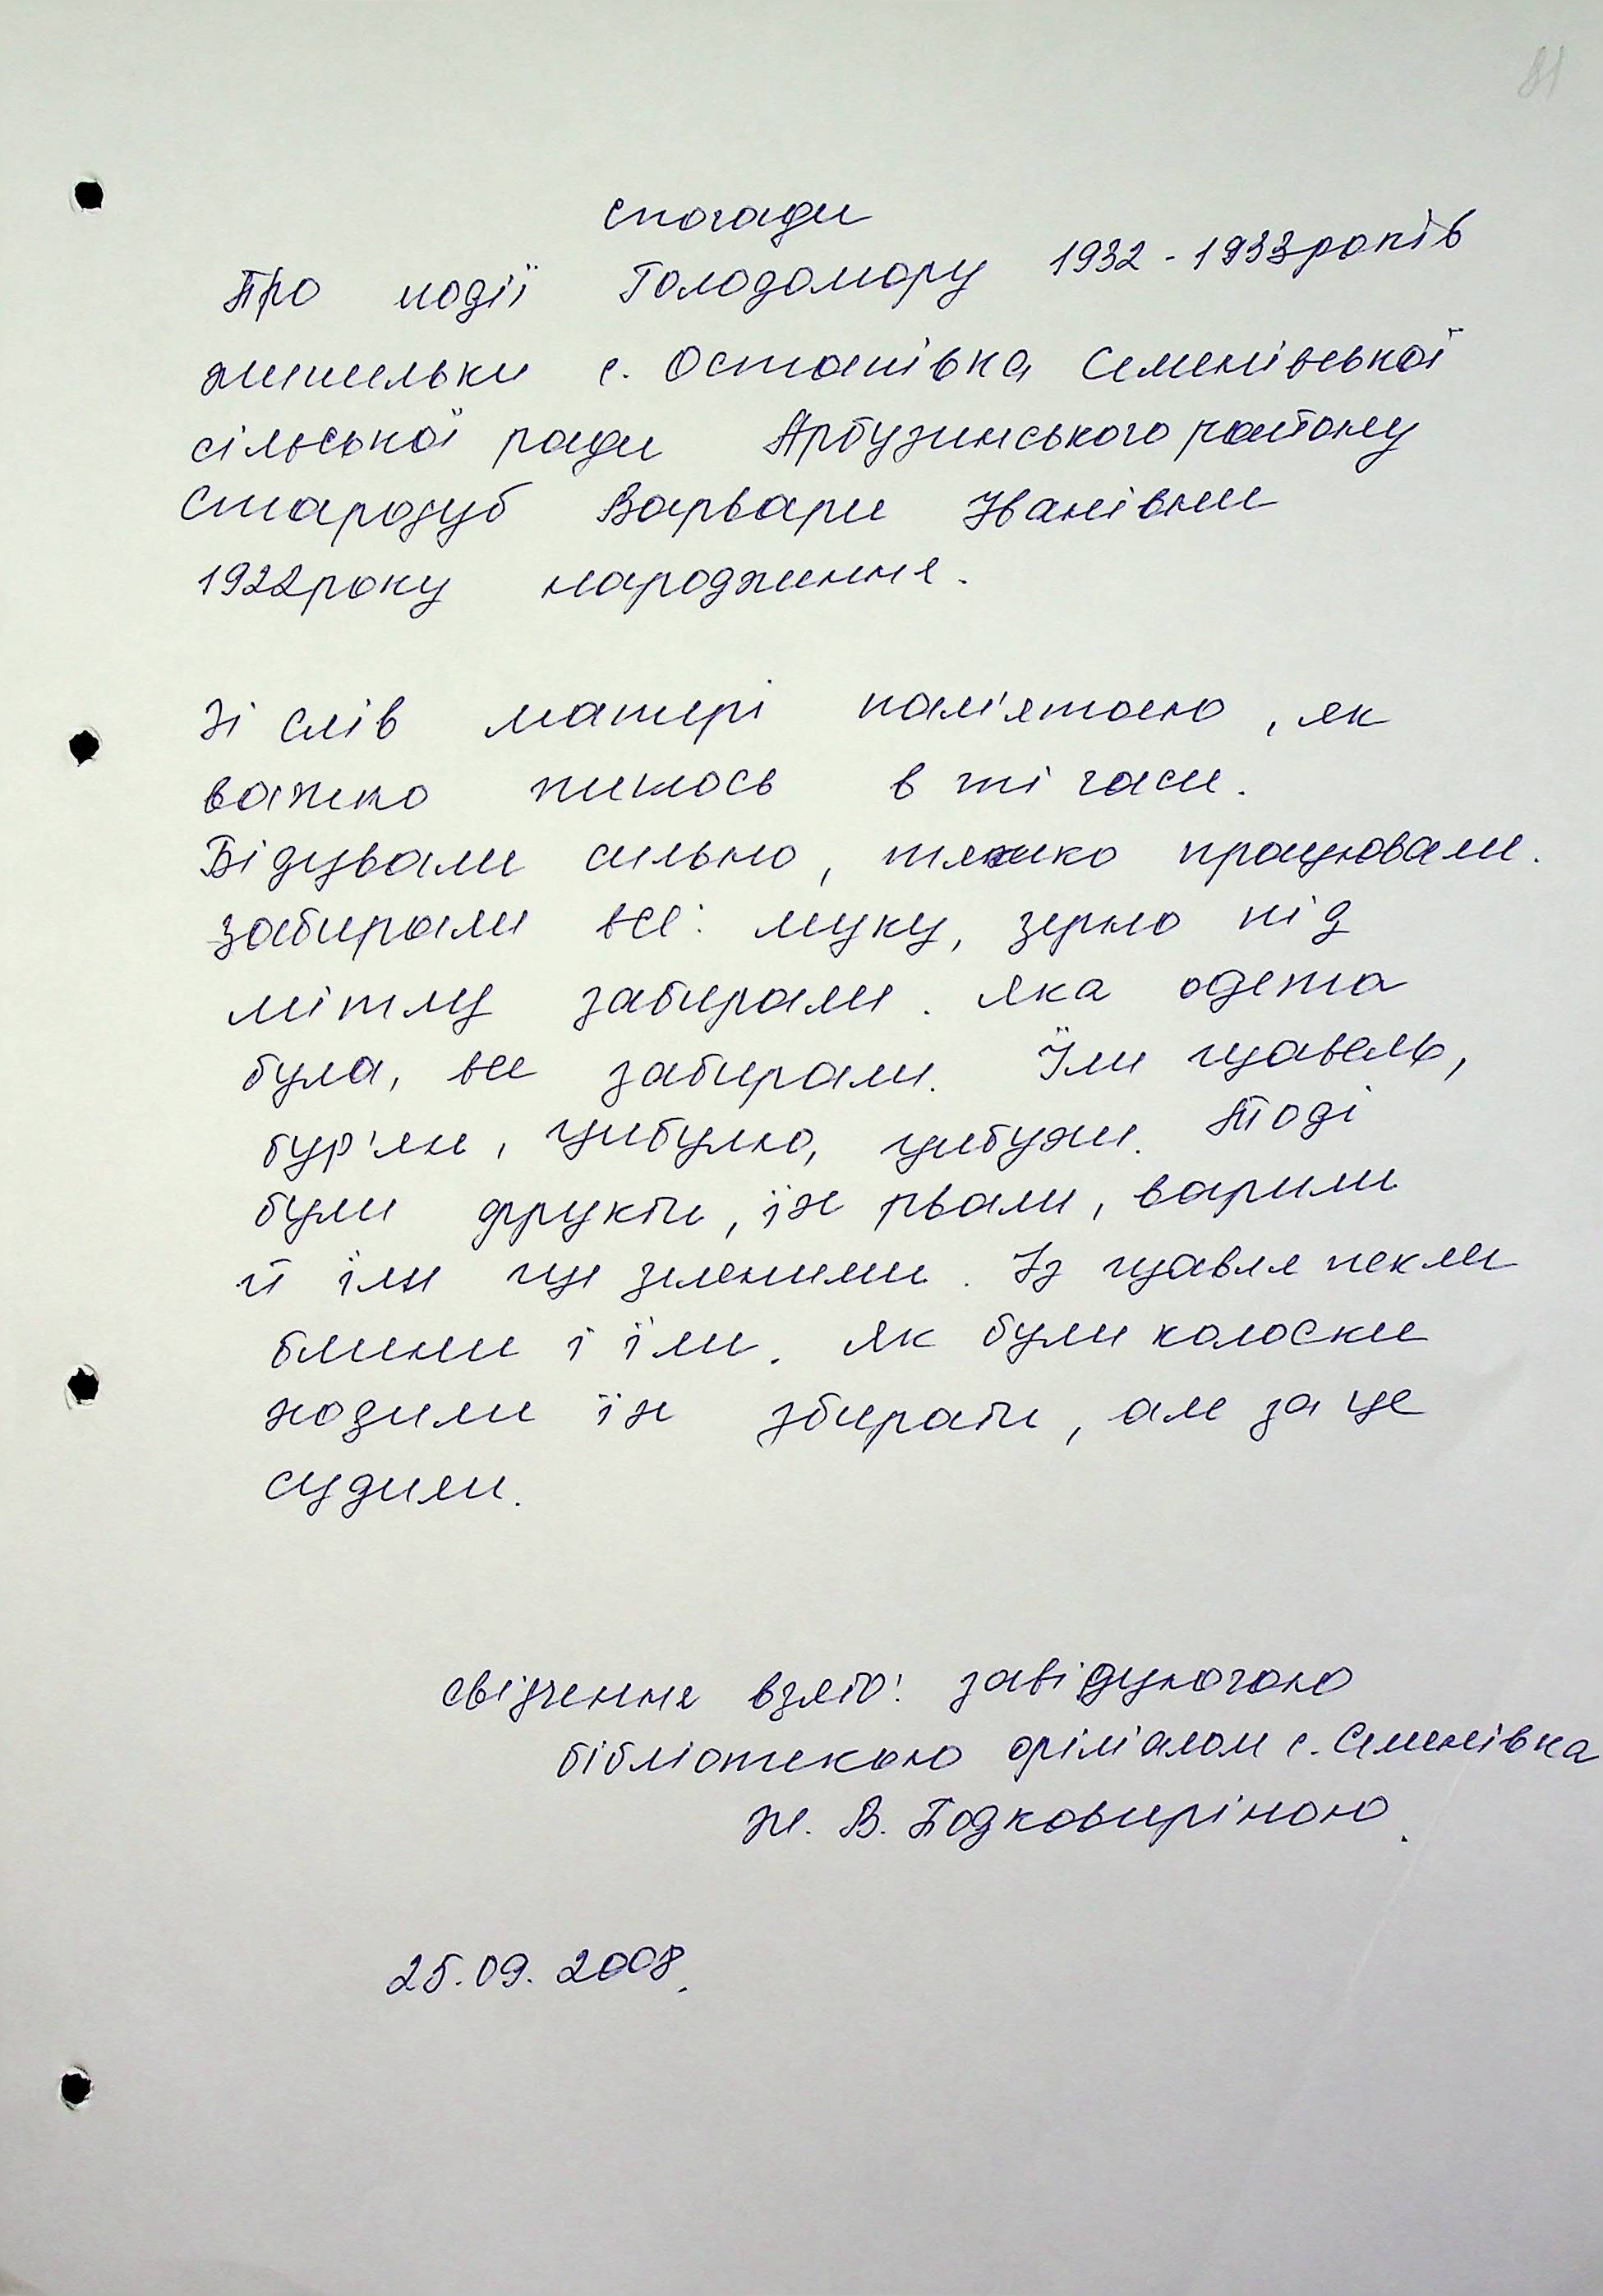 81
Спогади
Про події Голодомору 1932 - 1933 років
жительки с. Остапівка Семенівської
сільської ради Арбузинського району
Стародуб Варвари Іванівни
1922 року народження.
Зі слів матері пам'ятаю, як
важко жилось в ті часи.
Бідували сильно, тяжко працювали.
Забирали все: муку, зерно під
мітлу забирали. Яка одежа
була, все забирали. Їли щавель,
бур'ян, цибулю, цибухи. Тоді
були фрукти, їх рвали, варили
й їли ще зеленими. Із щавля пекли
блини і їли. Як були колоски
ходили їх збирати, але за це
судили.
Свідчення взято: завідуючою
бібліотекою філіалом с. Семенівка
Ж. В. Подковиріною.
25.09.2008.